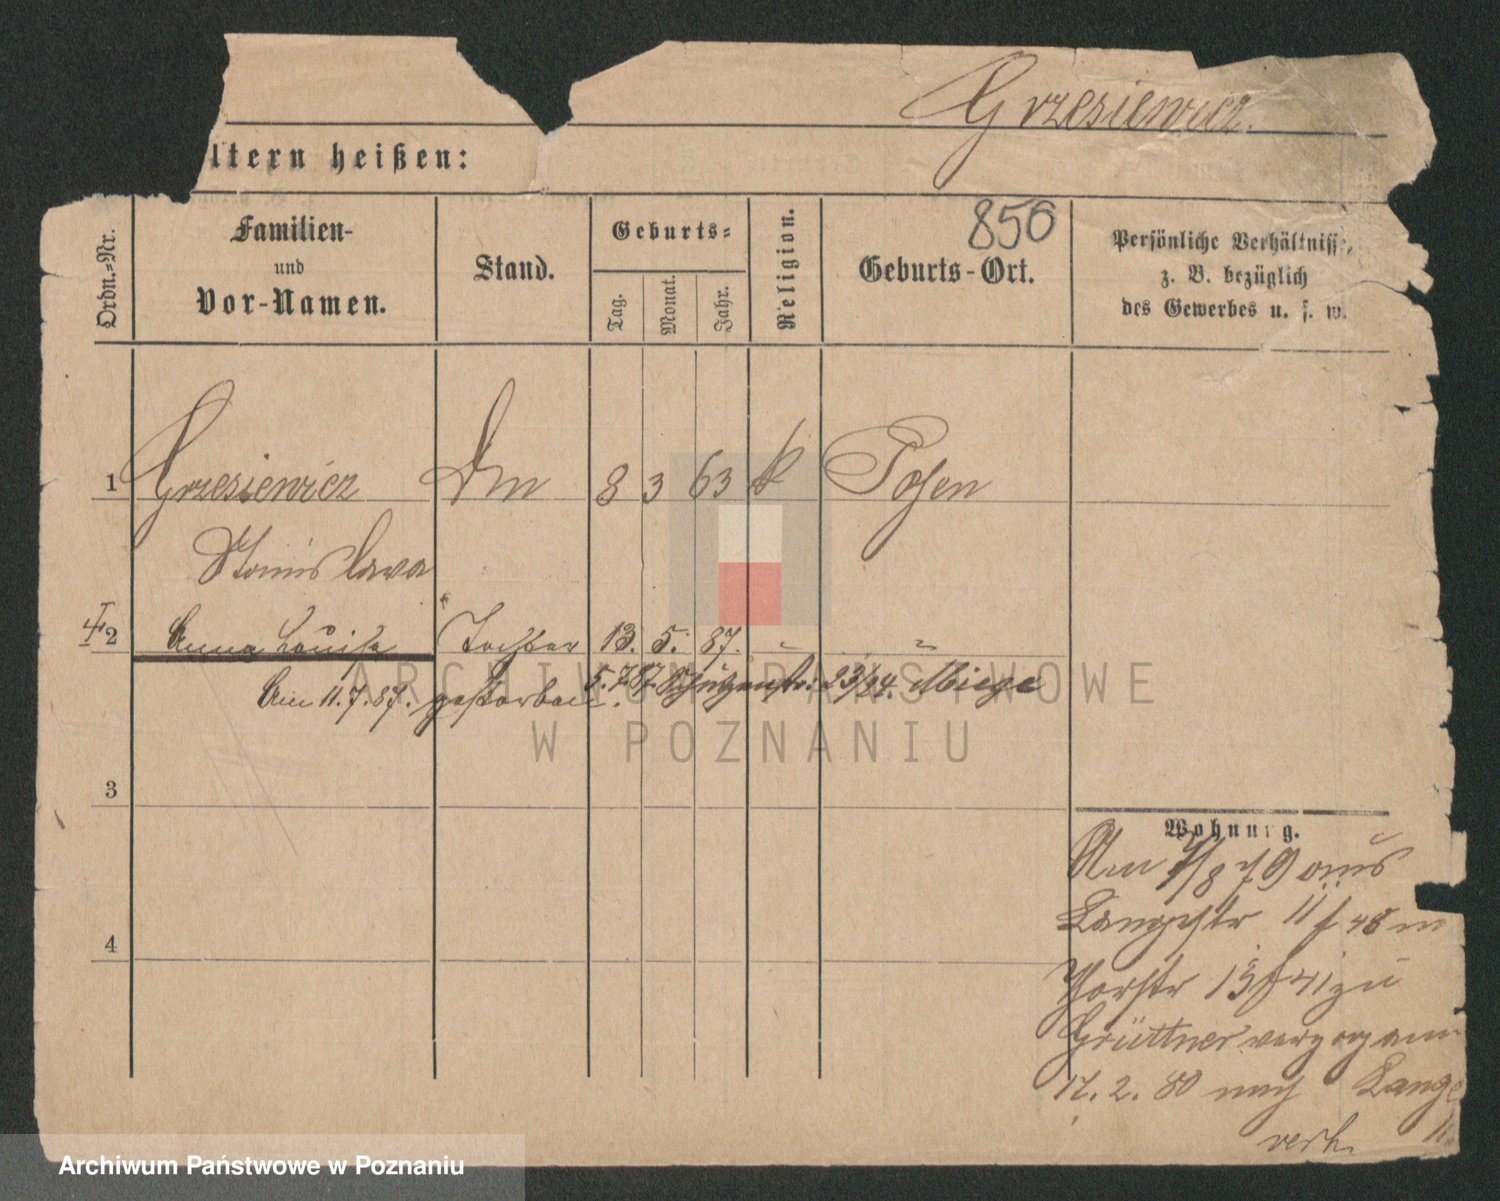 Grzesiewicz.
ltern heißen:
856
Ordn.=Nr.
Familien-
und
Vor-Namen.
Stand.
Geburts=
Tag.
Monat.
Jahr.
Religion.
Geburts-Ort.
Persönliche Verhältnisse,
z. B. bezüglich
des Gewerbes u. s. w.
1 Grzesiewicz Dm 8 3 63 k Posen
Stanislawa
2 Anna Louise Tochter 13. 5. 87. " "
Am 11.7.87. gestorben. 5.7.87. Schützenstr. 23/24. Miege
3
4
Wohnung.
Am 7/8 79 aus
Langestr 11 f 48 m
Thorstr 13 f 41 zu
Grüttner verzogen
17. 2. 80 nach Lange
verh.
ARCHIWUM PAŃSTWOWE
W POZNANIU
Archiwum Państwowe w Poznaniu